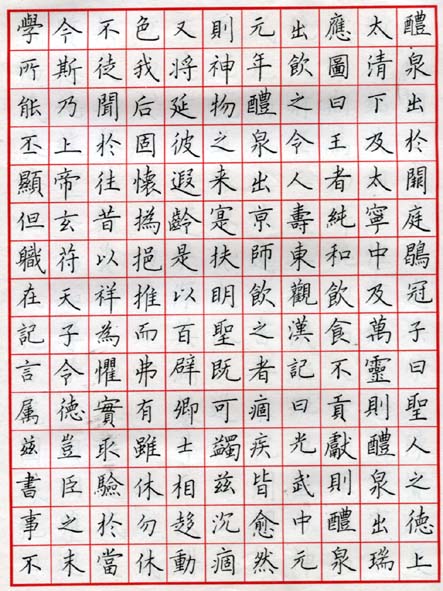 醴泉出於闕庭鶡冠子曰聖人之德上
太清下及太寧中及萬靈則醴泉出瑞
應圖曰王者純和飲食不貢獻則醴泉
出飲之令人壽東觀漢記曰光武中元
元年醴泉出亰師飲之者痼疾皆愈然
則神物之来寔扶明聖既可蠲兹沉痼
又將延彼遐齡是以百辟卿士相趍動
色我后固懷撝挹推而弗有雖休勿休
不徒聞於往昔以祥為懼實取驗於當
今斯乃上帝玄符天子令德豈臣之末
學所能丕顯但職在記言属兹書事不